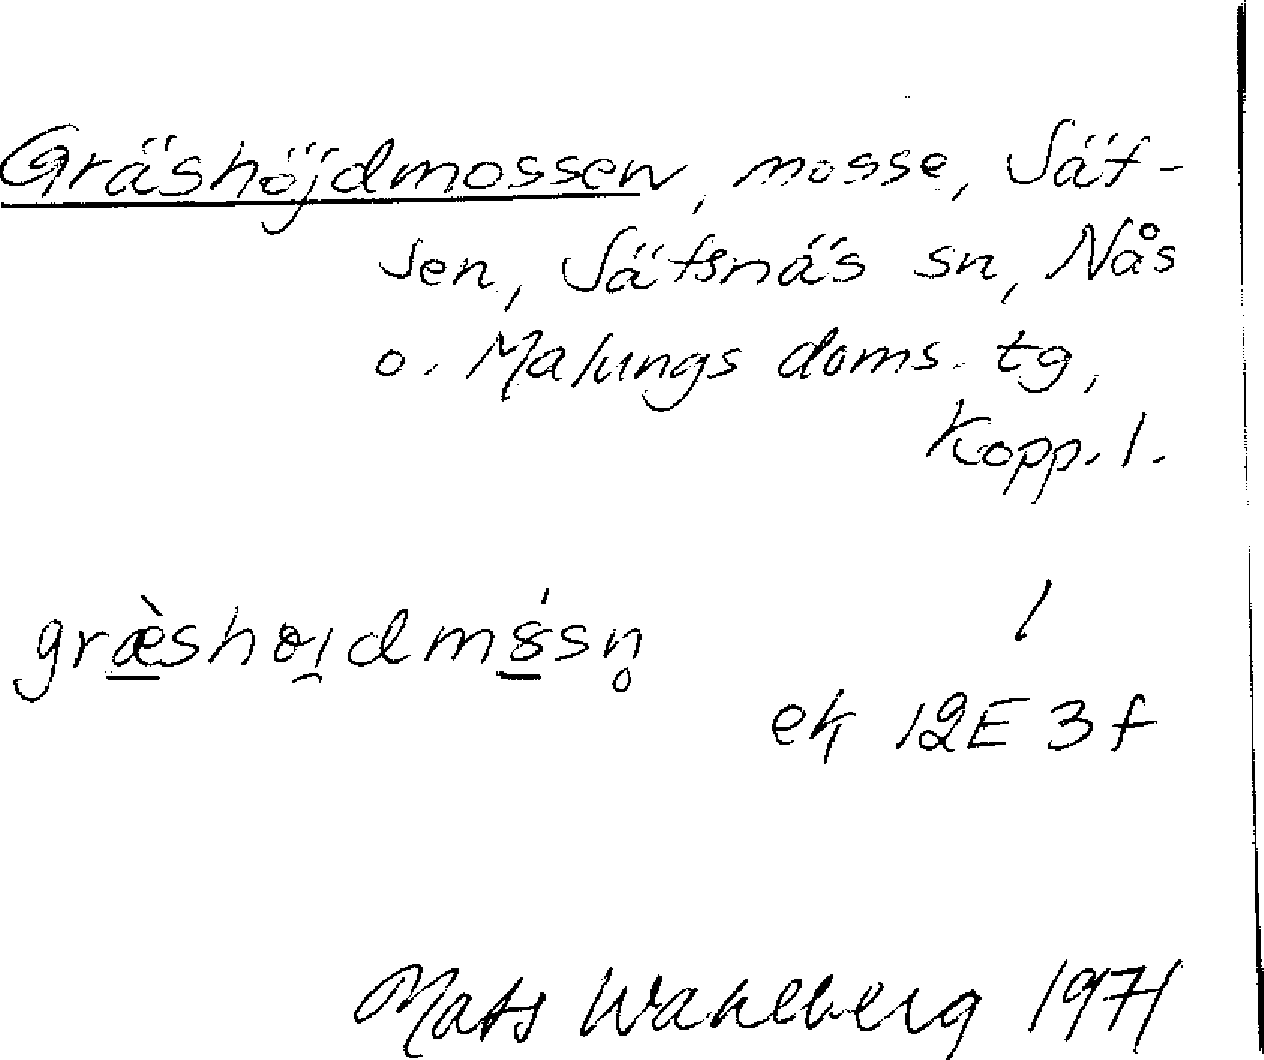 Gräshöjdmossen, mosse, Sät-
sen, Sätsnäs sn, Nås
o. Malungs doms. tg,
Kopp. l.
græ̀shøı̯dmó̱sn̥
/
ek 12E 3f
Mats Wahlberg 1971